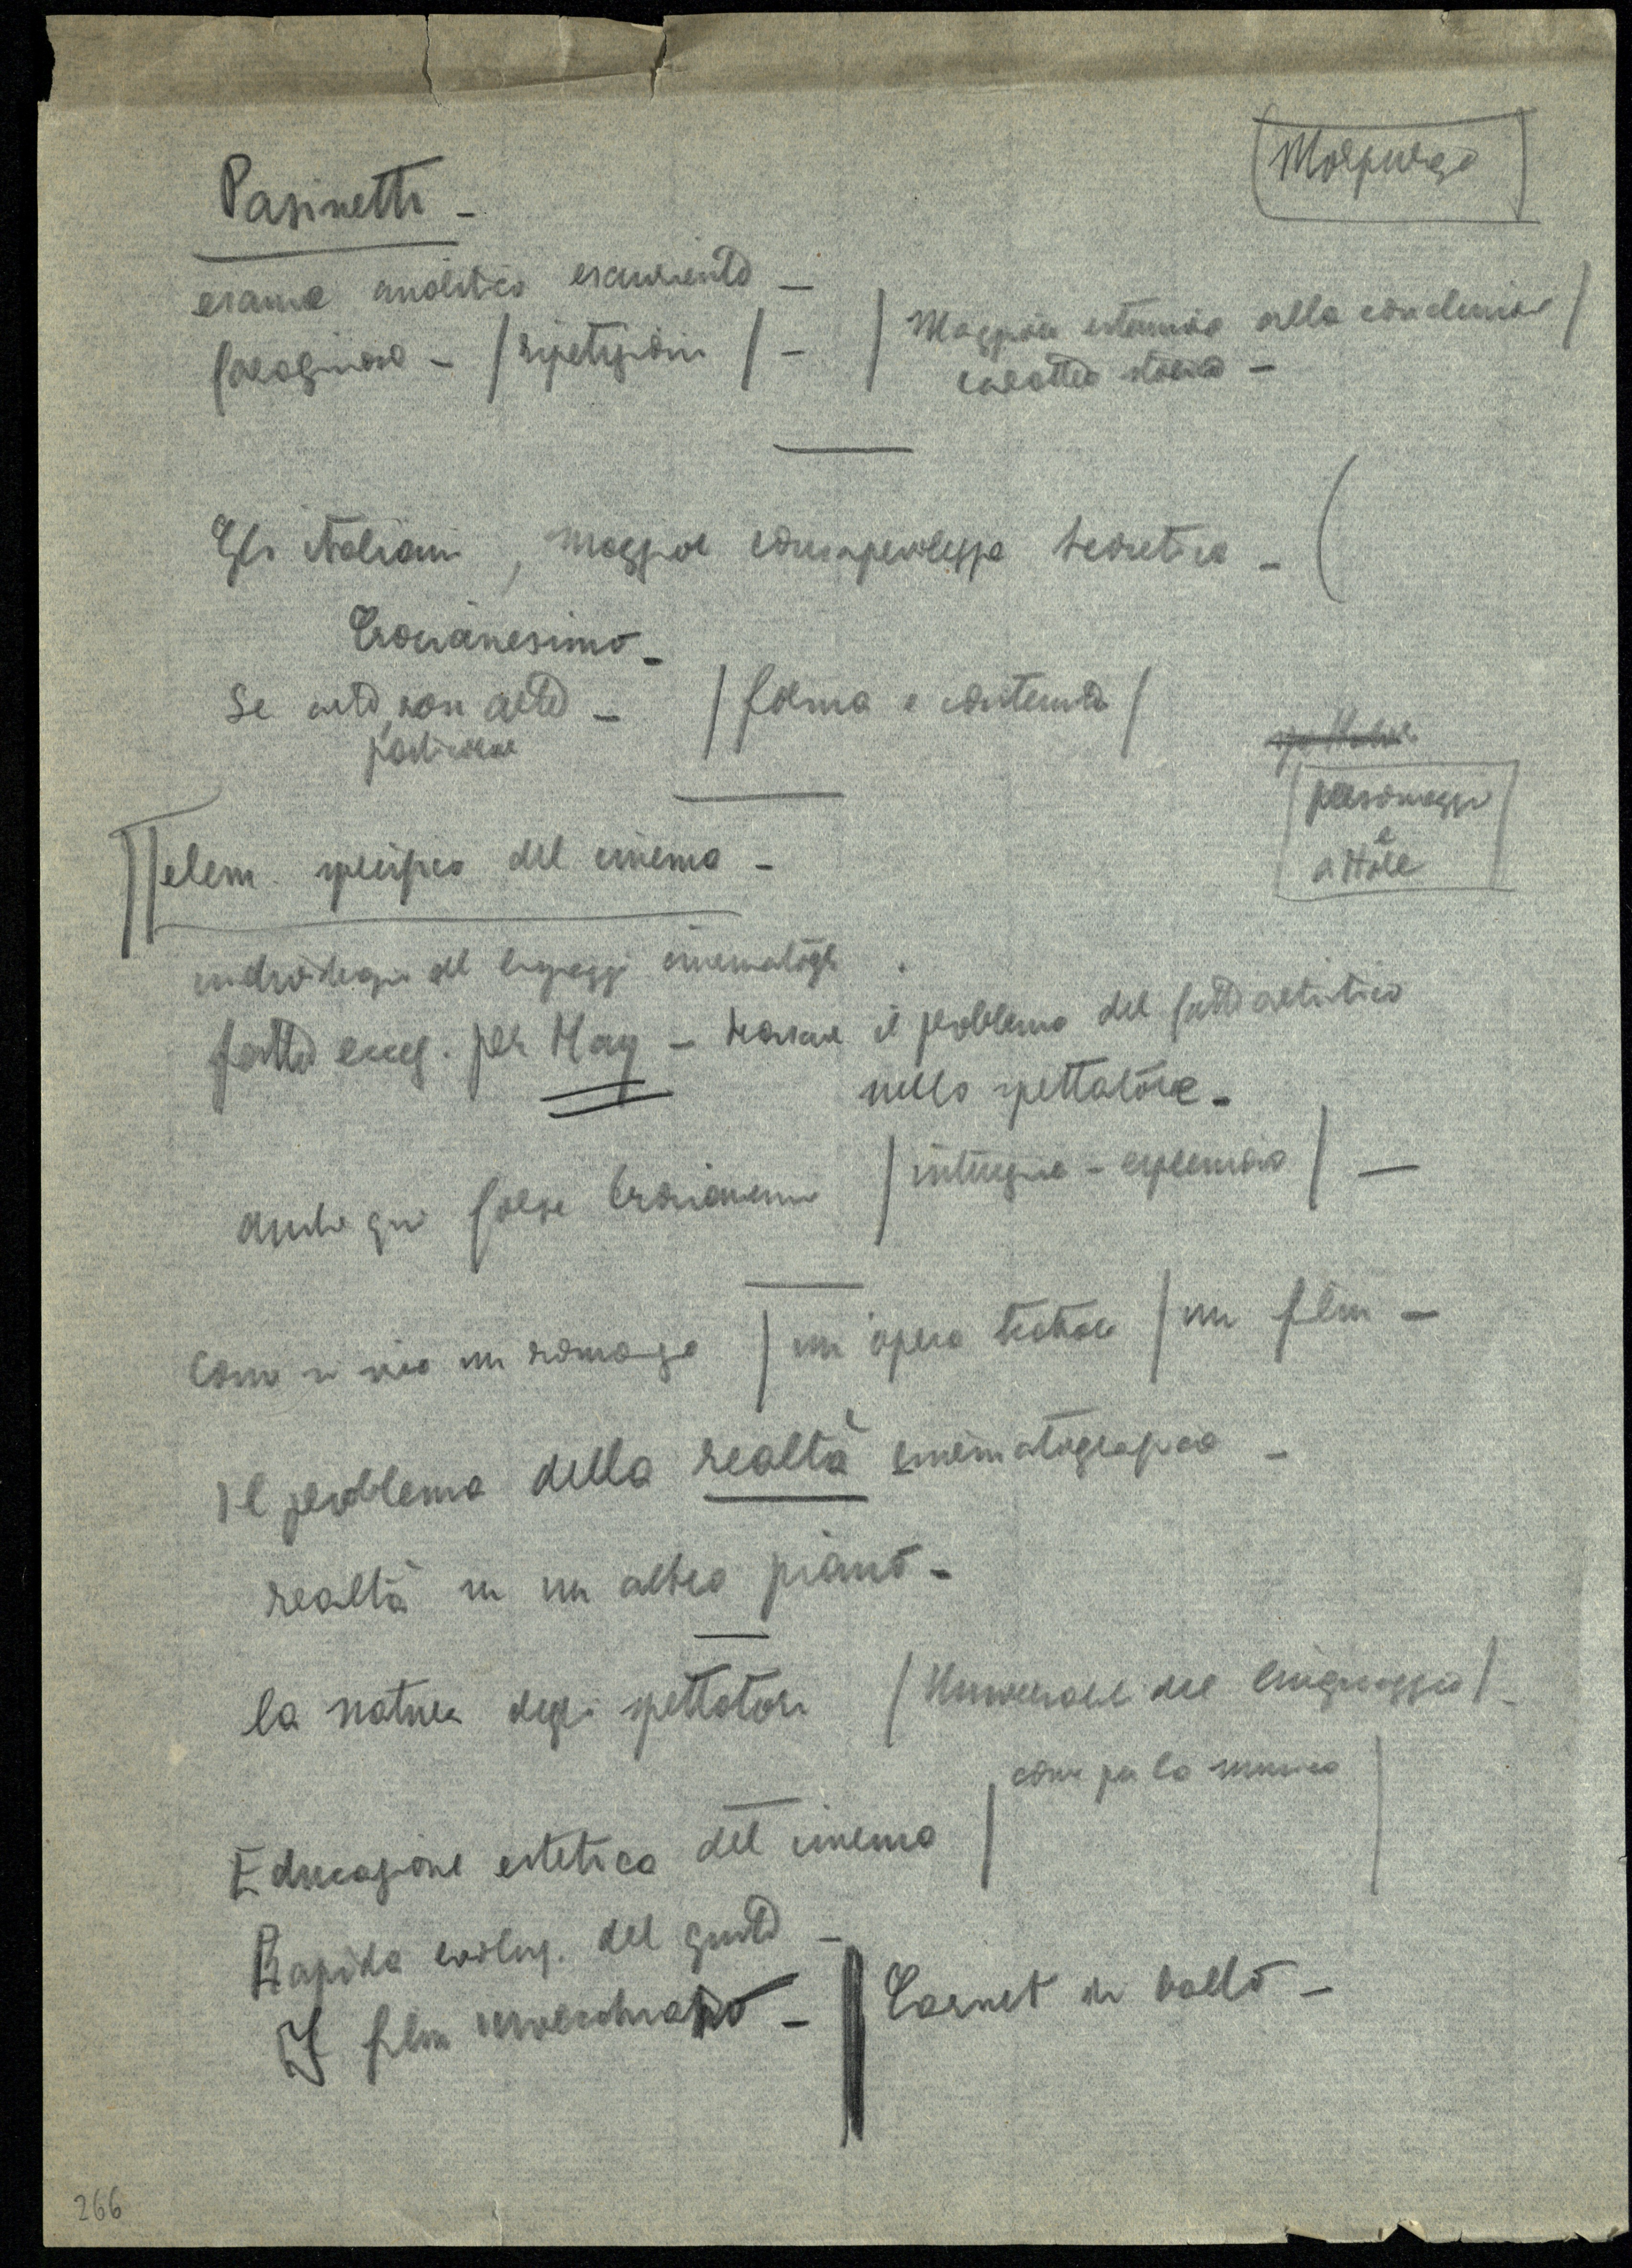 Morpurgo
Pasinetti -
esame analitico esauriente -
farraginoso - / ripetizioni / - / Maggiore estensione alla conclusione /
carattere storico -
Gli italiani, maggior consapevolezza teoretica - (
Crocianesimo -
Se arte, non arte - / forma e contenuto /
personaggi
e
attore
elem. specifico del cinema -
del linguaggio cinematogr.
fatta eccez. per May - trovare il problema del fatto artistico
nello spettatore -
anche qui forse Crocianesimo / intuizione - espressione / -
Come si vive un romanzo / un'opera teatrale / un film -
Il problema della realtà cinematografica -
realtà su un altro piano -
la natura degli spettatori / Universale del linguaggio / -
come per la musica
Educazione estetica del cinema /
Rapida evoluz. del gusto -
I film invecchiano - | Carnet di ballo -
266